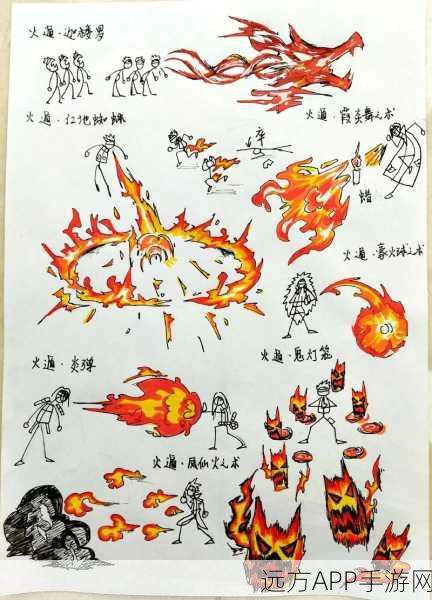 火遁·
火遁·红地蜘蛛
火遁·霞炎舞之术
蜡
火遁·豪火球之术
火遁·炎弹
火遁·鬼灯笼
火遁·凤仙火之术
远方APP手游网